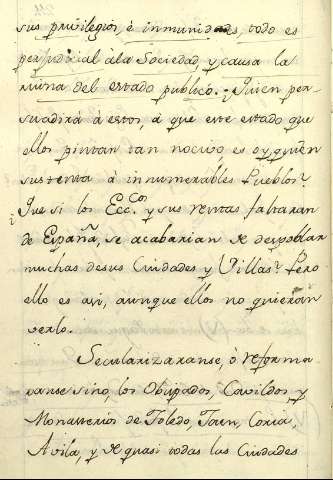 sus privilegios, è inmunidades, todo es
perjudicial ála Sociedad, y causa la
ruina del estado publico. ¿Quien per-
suadirá à estos, á que este estado que
ellos pintan tan nocivo es oy quien
sustenta á innumerables Pueblos?
¿Que si los Ecc.cos y sus rentas faltaran
de España, se acabarian de despoblar
muchas desus Ciudades y Villas? Pero
ello es asi, aunque ellos no quieran
verlo.
Secularizaranse, ò reforma-
ranse sino, los Obispados, Cavildos y
Monasterios de Toledo, Jaen, Coria,
Avila, y de quasi todas las Ciudades